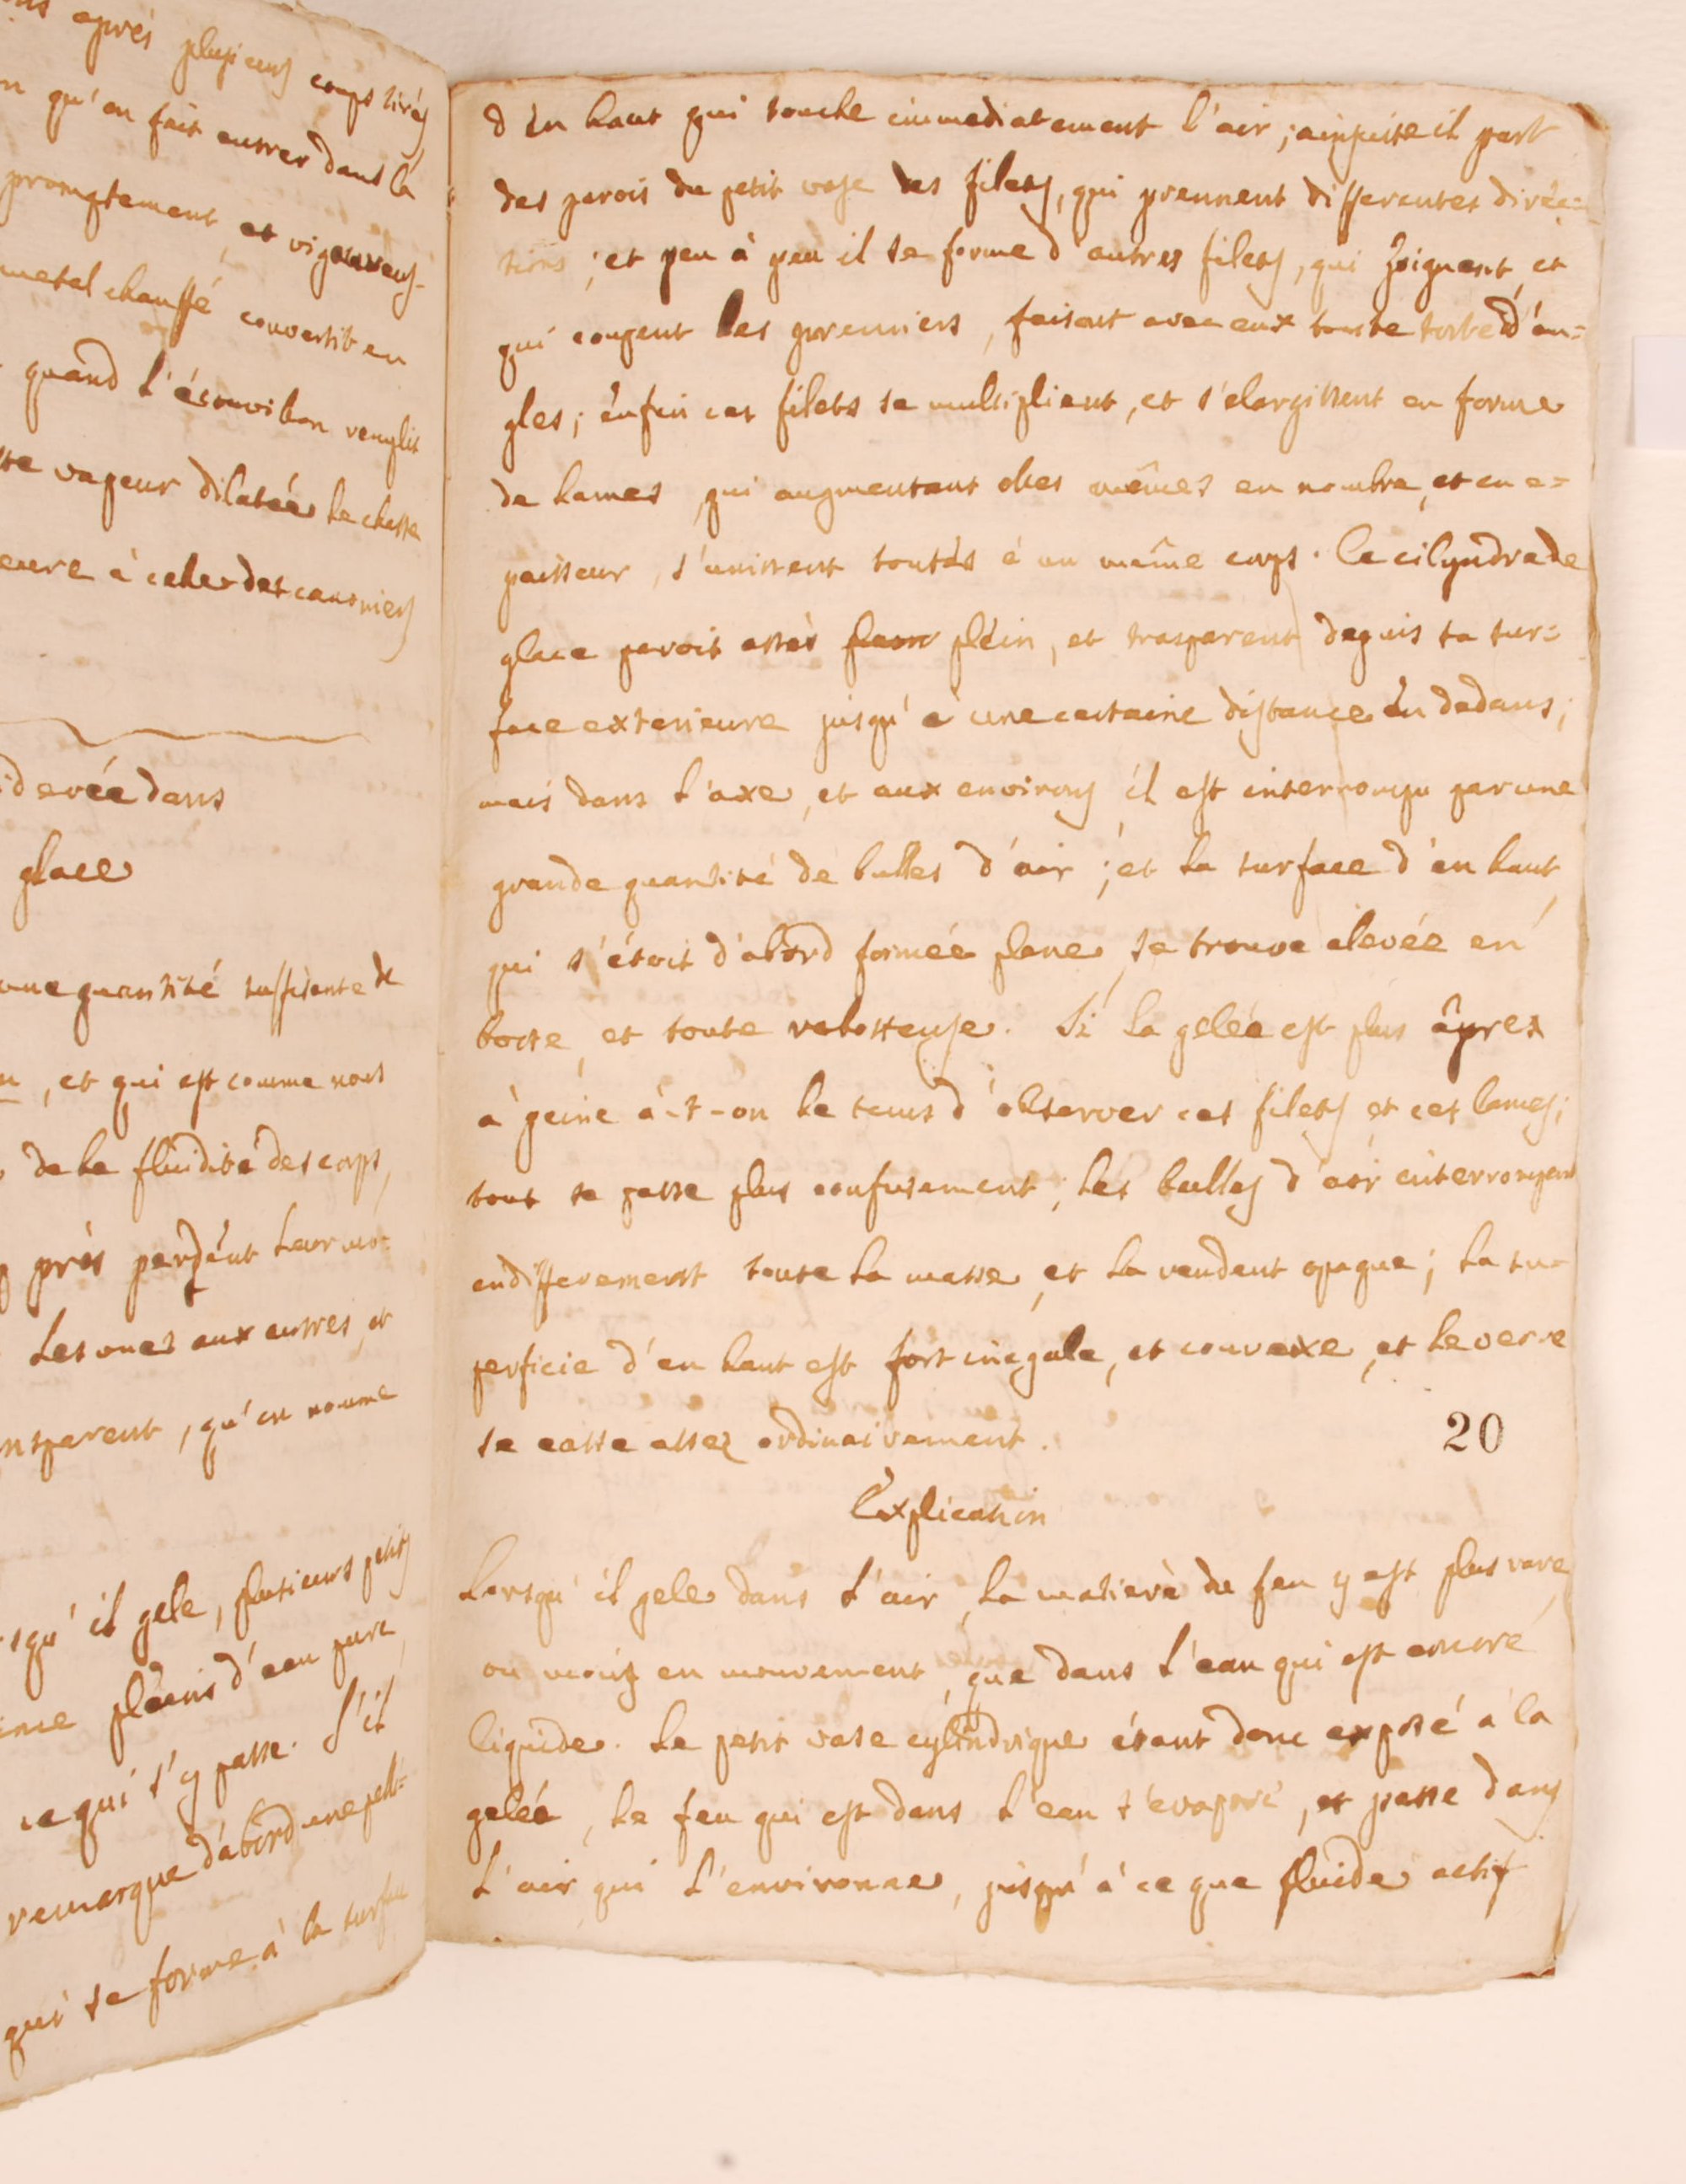 après plusieurs coups tirés
qu'on fait entrer dans la
promptement et vigoureus-
metal chauffé convertit en
quand l'écouvillon remplit
vapeur dilatée le chasse
à celle des canoniers
dans
glace
une quantité suffisante de
, et qui est comme nous
de la fluidité des corps,
près perdent leur mo-
les unes aux autres, et
, qu'on nomme
il gele, plusieurs petits
pleins d'eau pure
ce qui s'y passe. S'il
remarque d'abord une pelli-
qui se forme à la surface
d'en haut qui touche immediatement l'air ; ainsuite il part
des parois du petit vase des filets, qui prennent differentes direc=
tions ; et peu à peu il se forme d'autres filets, qui joignent, et
qui coupent les premiers, faisant avec eux toute sorte d'an=
gles ; enfin ces filets se multiplient, et s'elargissent en forme
de lames, qui augmentant elles mêmes en nombre, et en e=
paisseur, s'unissent toutes à un même corps. Le cilyndre de
glace paroit assès plein, et trasparent depuis sa sur=
face exterieure jusqu'à une certaine distance en dedans ;
mais dans l'axe, et aux environs il est interrompu par une
grande quantité de bulles d'air ; et la surface d'en haut,
qui s'étoit d'abord formée plane, se trouve elevée en
bosse, et toute rabotteuse. Si la gelée est plus âpre
à peine a-t-on le tems d'observer ces filets et ces lames ;
tout se passe plus confusement ; les bulles d'air interrompent
endifferement toute la masse, et la rendent opaque ; la su-
perficie d'en haut est fort inegale, et convexe, et le verre
se casse assez ordinairement.
20
Explication
Lorsqu'il gele dans l'air, la matierè du feu y est plus rare,
ou moins en mouvement, que dans l'eau qui est encore
liquide. Le petit vase cylindrique étant donc exposé à la
gelée, le feu qui est dans l'eau s'evapore, et passe dans
l'air qui l'environne, jusqu'à ce que fluide actif